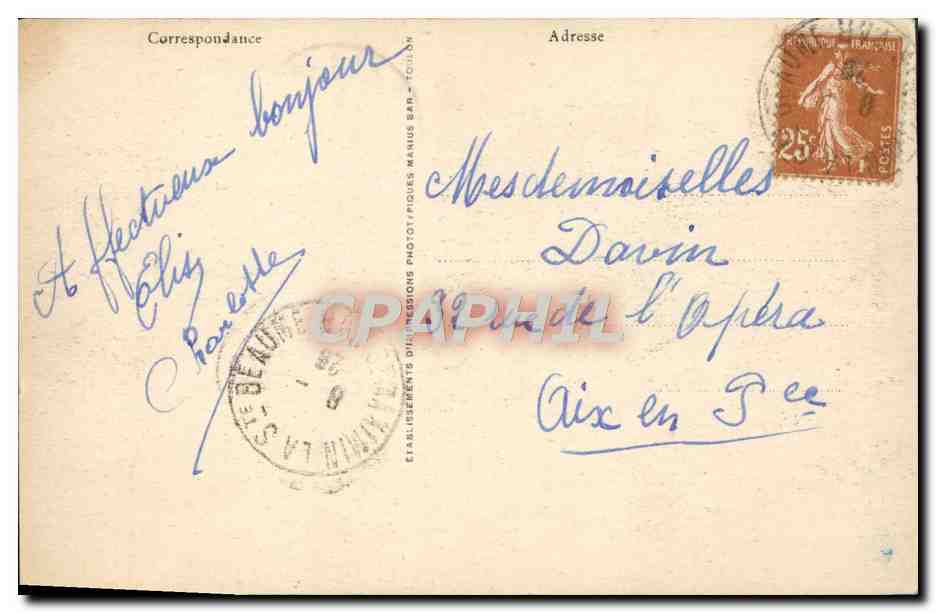 Correspondance
Affectueux bonjour
Elise
Charlotte
ÉTABLISSEMENTS D'IMPRESSIONS PHOTOT/PIQUES MARIUS BAR - TOULON
LA STE BEAUME
Adresse
RÉPUBLIQUE FRANÇAISE
25c
POSTES
Mesdemoiselles
Davin
32 rue de l'Opéra
Aix en Pce
CPAPHIL